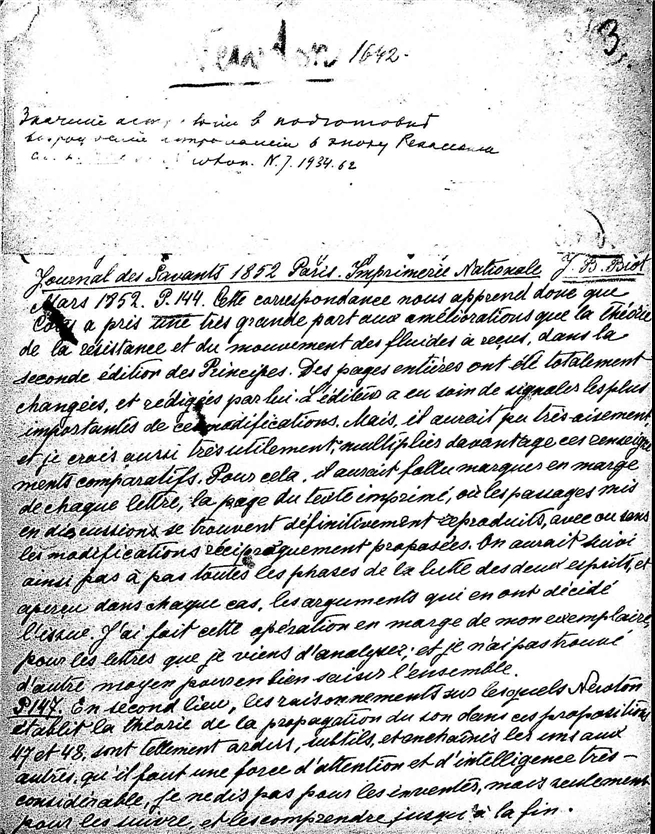 3.
Newton 1642.
Значение в подготовке
в эпоху Ренессанса
N.J. 1934. 62
Journal des Savants 1852 Paris. Imprimerie Nationale J. B. Biot
Mars 1852. P.144. Cette correspondance nous apprend donc que
a pris une très grande part aux améliorations que la théorie
de la résistance et du mouvement des fluides a reçus, dans la
seconde édition des Principes. Des pages entières ont été totalement
changées, et rédigées par lui. L'éditeur a eu soin de signaler les plus
importantes de ces modifications. Mais, il aurait pu très-aisement,
et je crois aussi très utilement, multiplier davantage ces renseigne
ments comparatifs. Pour cela, il aurait fallu marquer en marge
de chaque lettre, la page du texte imprimé, où les passages mis
en discussions se trouvent définitivement reproduits, avec ou sans
les modifications réciproquement proposées. On aurait suivi
ainsi pas à pas toutes les phases de la lutte des deux esprits, et
aperçu dans chaque cas, les arguments qui en ont décidé
l'issue. J'ai fait cette opération en marge de mon exemplaire,
pour les lettres que je viens d'analyser; et je n'ai pas trouvé
d'autre moyen pour en bien saisir l'ensemble.
P147. En second lieu, les raisonnements sur lesquels Newton
établit la théorie de la propagation du son dans ces propositions
47 et 48, sont tellement ardus, subtils, et enchaînés les uns aux
autres, qu'il faut une force d'attention et d'intelligence très-
considérable, je ne dis pas pour les inventer, mais seulement
pour les suivre, et les comprendre jusqu'à la fin.